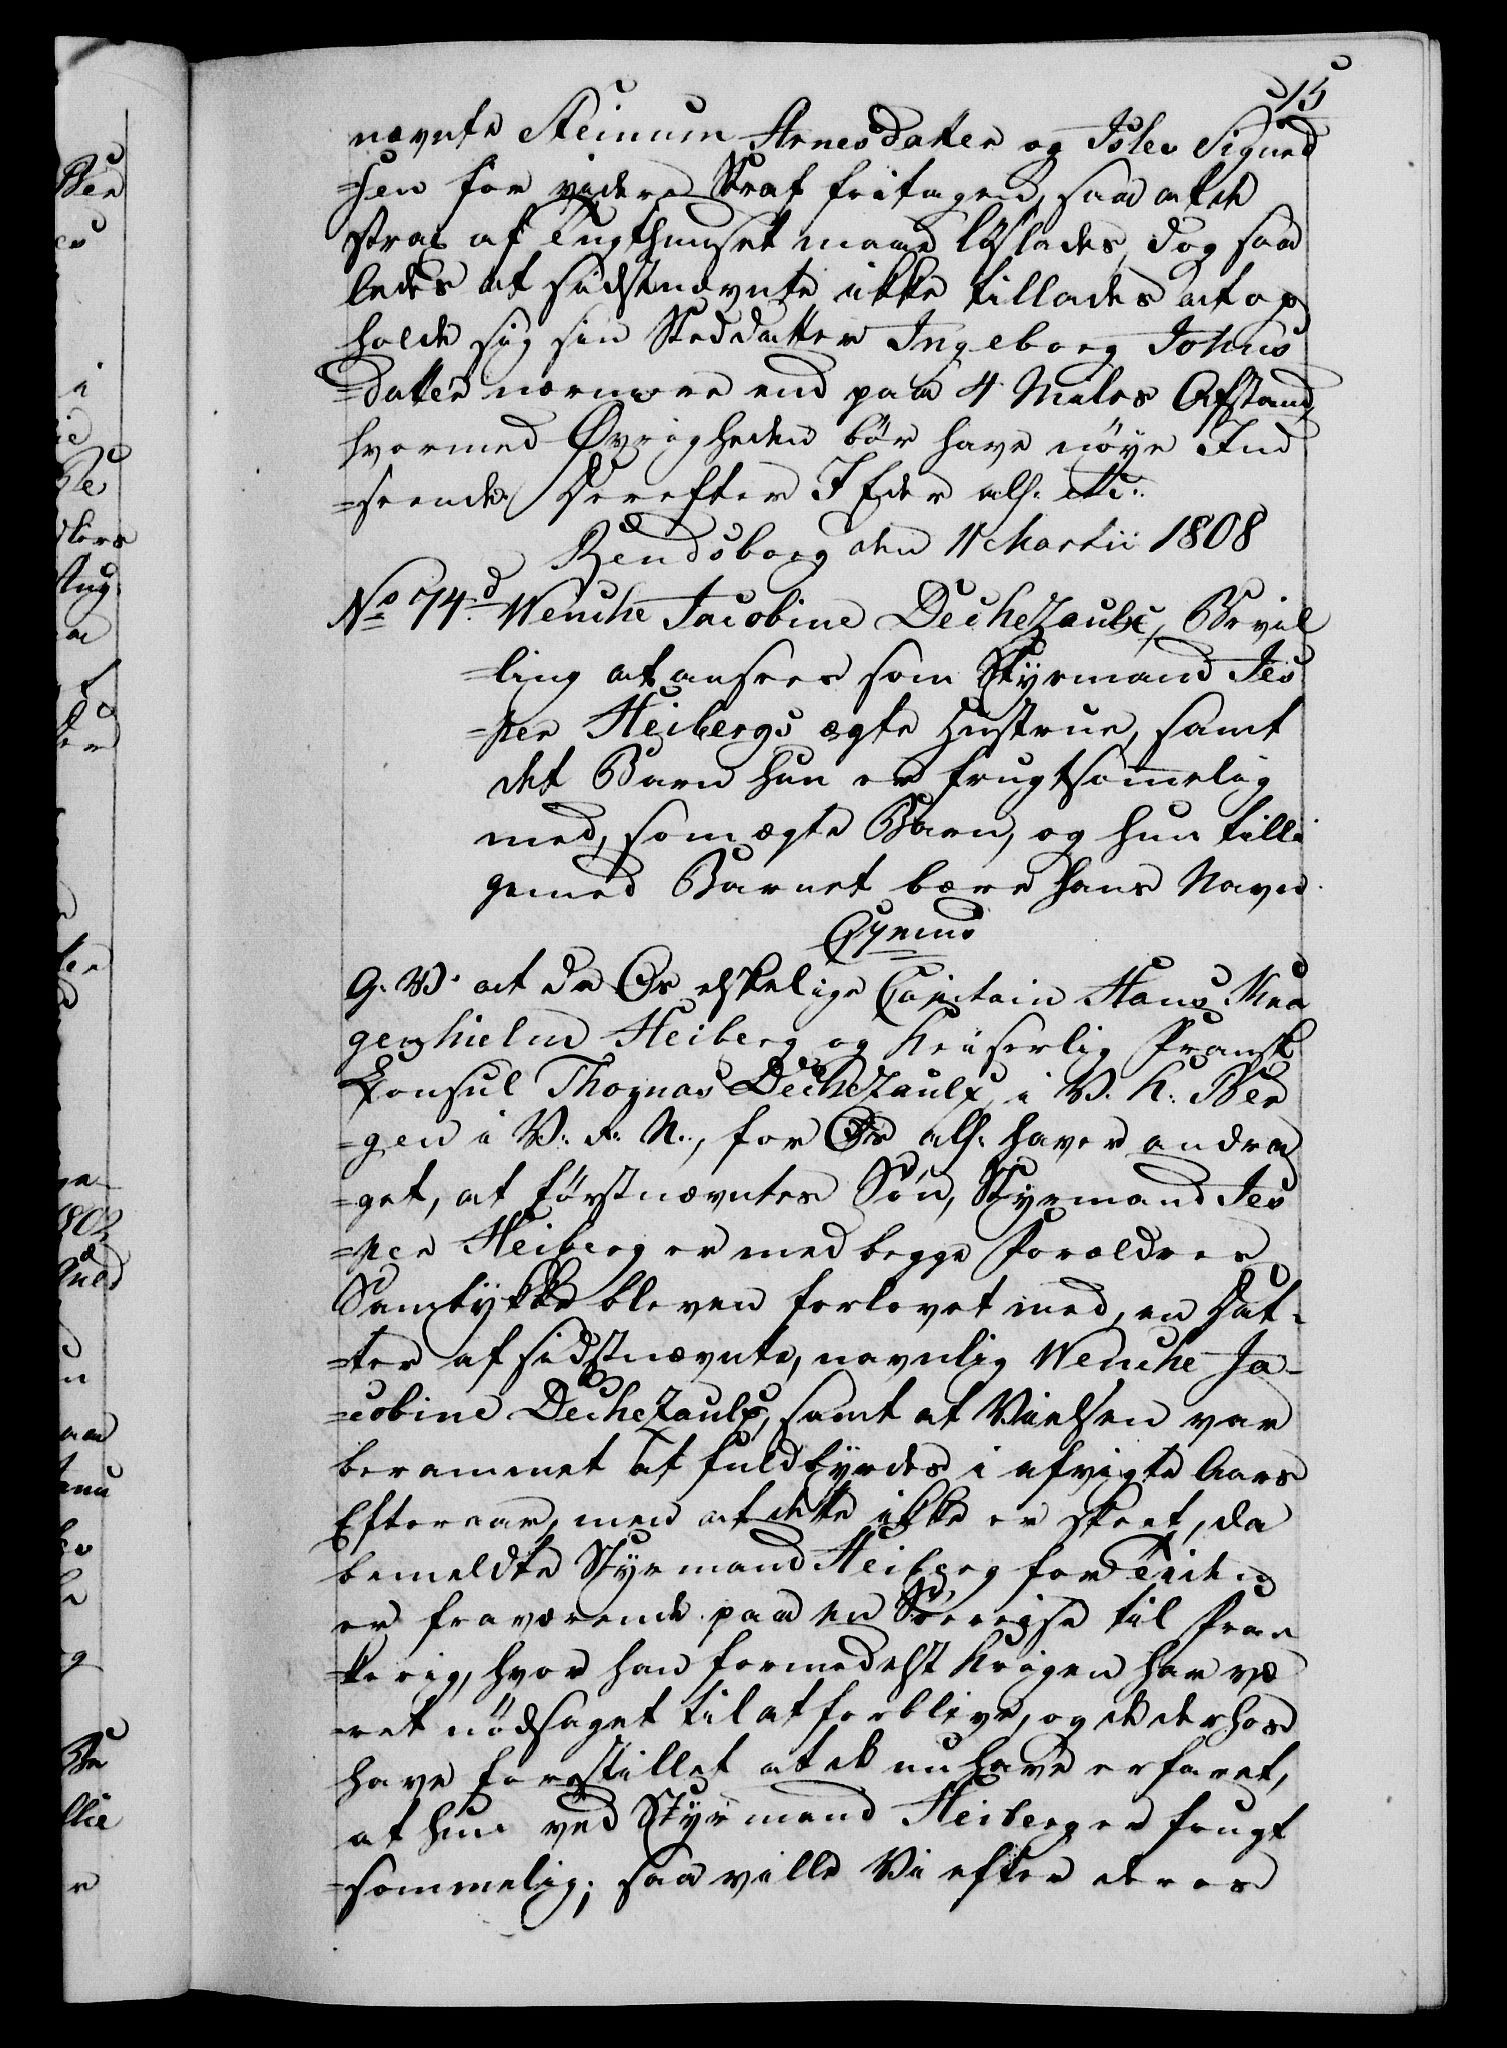 15
nævnte Steinum Arnesdatter og Isles Sigurd
=sen for videre Straf fritages, saa at de
strax af Tugthuuset maae løslades, dog saa
ledes at sidstnævnte ikke tillades at op
holde sig sin Steddatter Ingeborg Johns
=datter nærmere end paa 4 Miles Afstand,
hvormed Øvrigheden bør have nøye Ind
=seende. Derefter I Eder alh: etc:
Rendsborg den 11 Martii 1808
No 74.d Wenche Jacobine Dechezaulx, Bevil
=ling at ansees som Styrmand Jes
=per Heibergs ægte Hustrue, samt
det Barn hun er frugtsommelig
med, som ægte Barn, og hun tilli
gemed Barnet bære hans Navn.
G. V. at da Os elskelige Capitain Hans Kra
genhielm Heiberg og Keiserlig Fransk
Consul Thomas Dechezaulx, i V. K: Ber
=gen i V: R: N:, for Os alh: haver andra
=get, at førstnævntes Søn, Styrmand Jes
=per Heiberg er med begge Forældres
Samtykke bleven forlovet med, en Dat=
=ter af sidstnævnte, navnlig Wenche Ja=
=cobine Dechezaulx, samt at Vielsen var
berammet at fuldbyrdes i afvigte Aars
Efteraar, men at dette ikke er skeet, da
bemeldte Styrmand Heiberg for Tiden
er fraværende paa en Søereise til Fran
=kerig, hvor han formedelst Krigen har væ
=ret nødsaget til at forblive, og de derhos
have forestillet at de nu have erfaret,
at hun ved Styrmand Heiberg er frugt
=sommelig; saa ville Vi efter deres